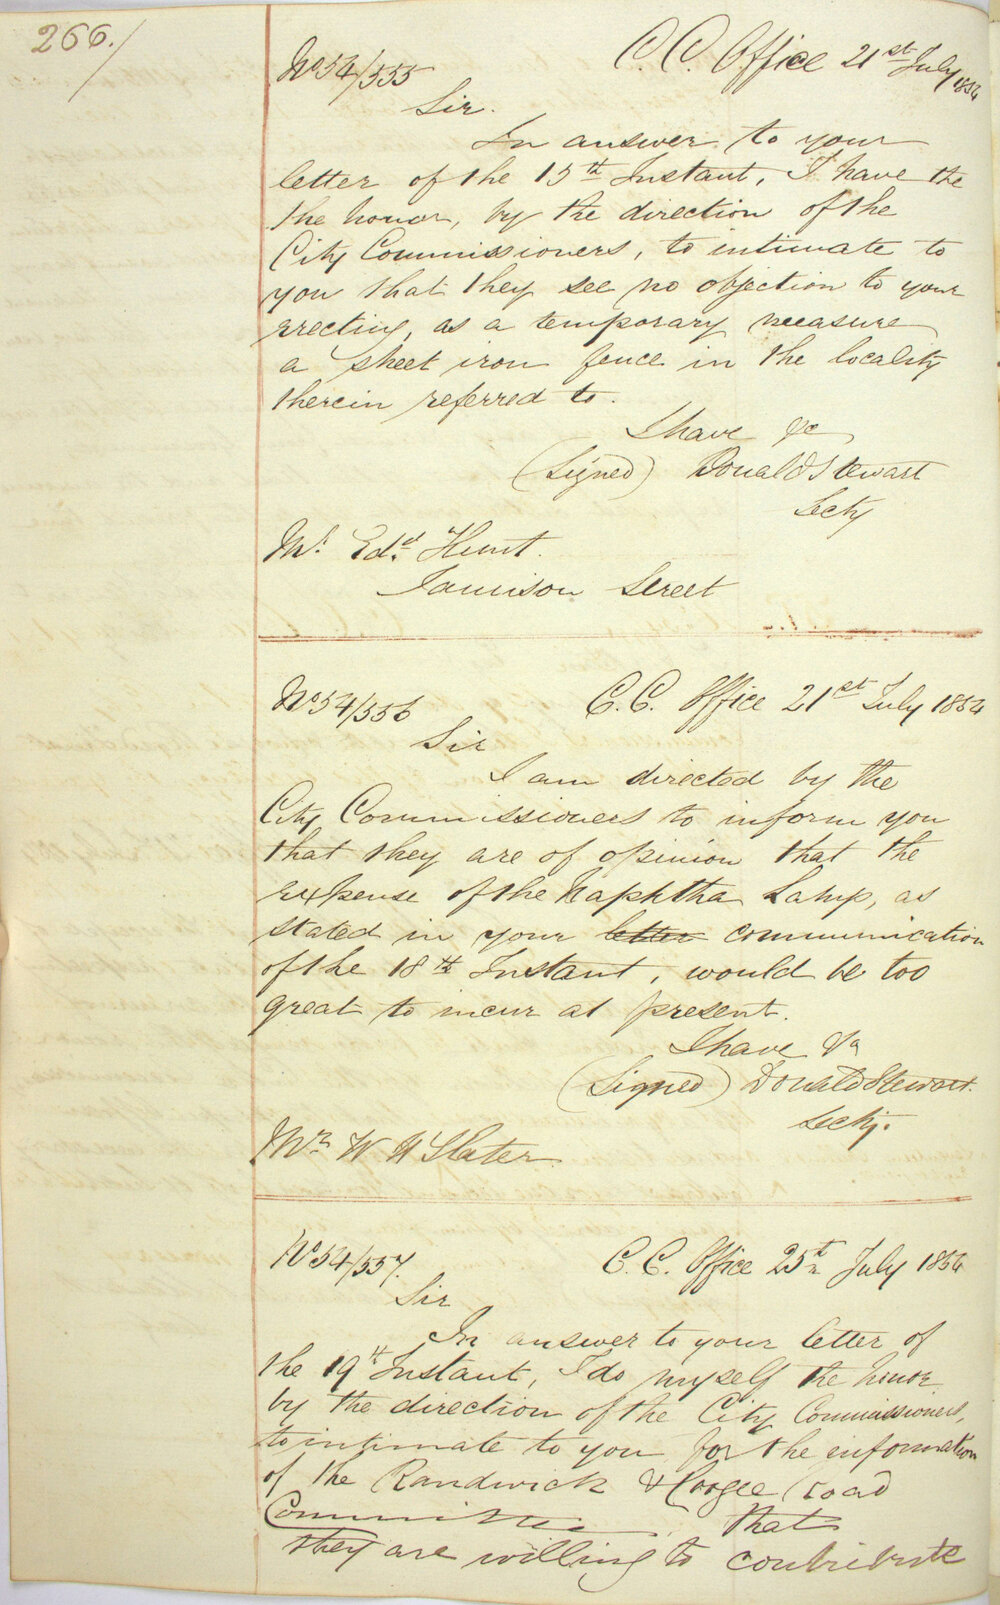 266.
No 54/555 C. C. Office 21st July 1854
Sir.
In answer to your
letter of the 15th Instant, I have the
the honor, by the direction of the
City Commissioners, to intimate to
you that they see no objection to your
erecting, as a temporary measure
a sheet iron fence in the locality
therein referred to.
I have &c
(Signed) Donald Stewart
Secty
Mr. Edd. Hunt.
Jamison Street
No 54/556 C. C. Office 21st July 1854
Sir
I am directed by the
City Commissioners to inform you
that they are of opinion that the
expense of the Naphtha Lamp, as
stated in your letter communication
of the 18th Instant, would be too
great to incur at present.
I have &c
(Signed) Donald Stewart.
Secty.
Mr. W H Slater.
No 54/557. C. C. Office 25th July 1854
Sir
In answer to your letter of
the 19th Instant, I do myself the honor
by the direction of the City Commissioners,
to intimate to you for the information
of the Randwick & Coogee Road
Committee, that
they are willing to contribute